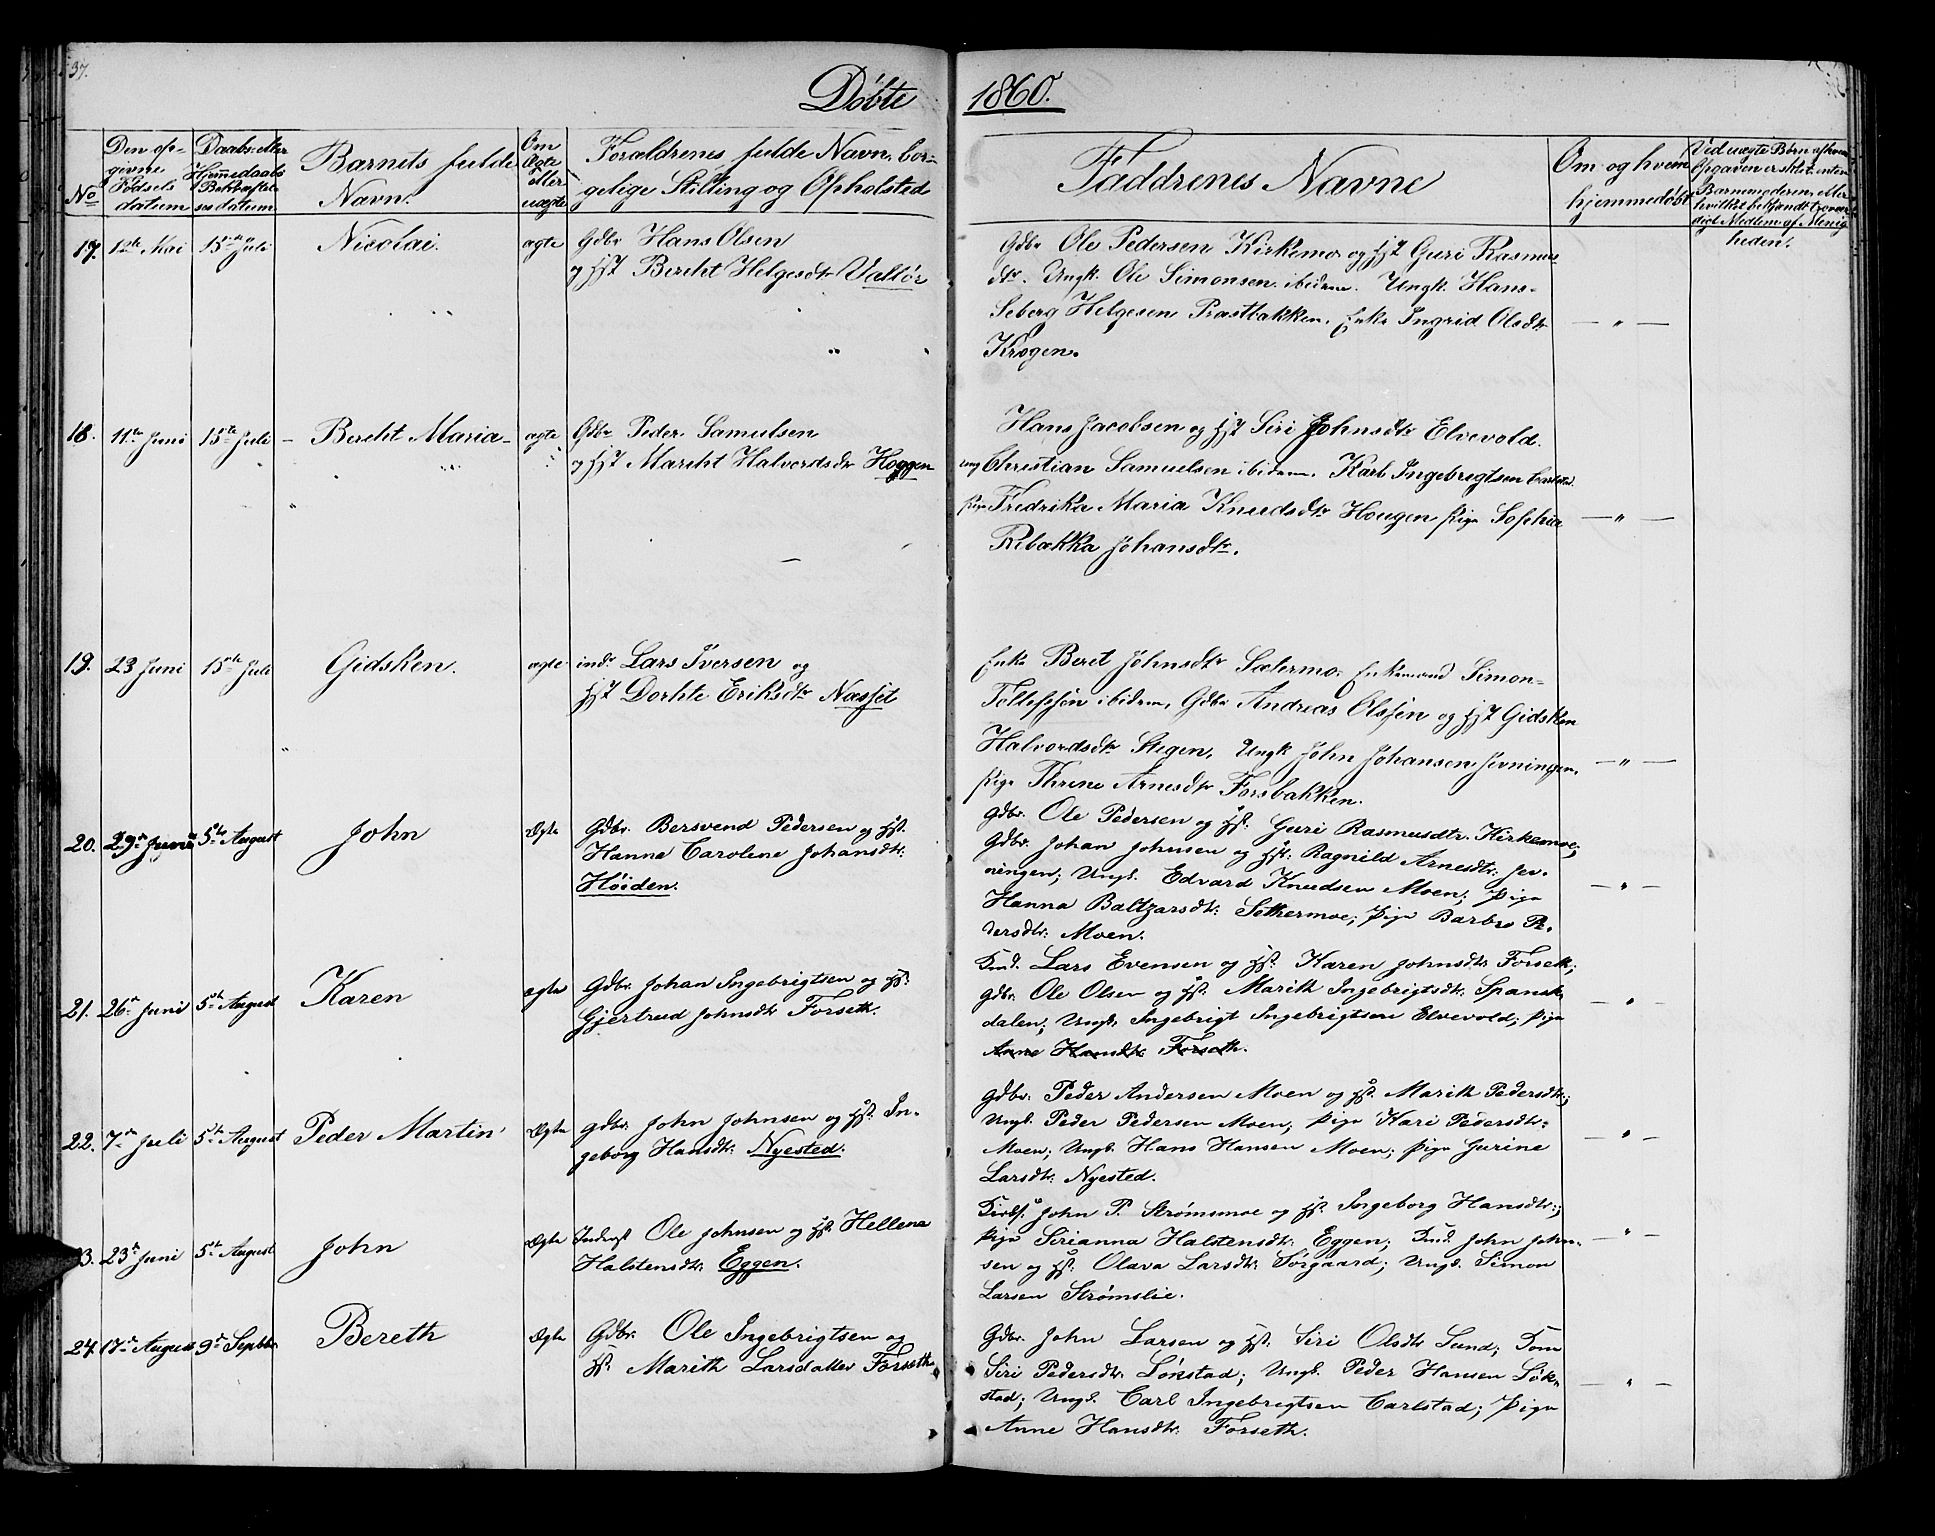 37.
Döbte 1860.
No
Den op-
givne
Födsels
datum
Daabs eller
Hjemmedaabs
Bekræftel
ses datum
Barnets fulde
Navn.
Om
Ægte
eller
uægte
Forældrenes fulde Navn, bor-
gelige Stilling og Opholsted
Faddrenes Navne
Om og hvem
hjemmedöbt
Ved uægte Börn af hvem
Opgaven er sket, enten
Barnemoderen, eller
hvilket bekjendt trovær
digt Medlem af Menig
heden.
17. 12te Mai 15de Juli Nicolai. ægte Gdbr Hans Olsen
og Hst Bercht Helgesdtr Valtör
Gdbr Ole Pedersen Kirkemo og Hst Guri Rasmus
dtr. Ungk. Ole Simonsen ibidem. Ungk. Hans-
Seberg Helgesen Præstbakken. Enke Ingrid Olsdtr
Krogen.
— " —
18. 11te Juni 15de Juli - Bercht Maria - ægte Gdbr Peder Samulsen
og Hst Marcht Halvordsdr Hoggen
Hans Jacobsen og Hst Siri Johnsdtr Elvevold.
ung Christian Samuelsen ibidem. Karl Ingebrigtsen Carlstad.
Pige Fredrika Maria Knudsdtr Hougen Pige Sophia
Rebækka Johansdtr.
— " —
19. 23 Juni 15de Juli Gidsken. ægte indr Lars Iversen og
Hst Dorhte Eriksdtr Næsset
Enke Beret Johnsdtr Sætermo. Enkemand Simon-
Tollefsen ibidem, Gdbr Andreas Olssen og Hst Gidsken
Halvordsdtr Stegen, Ungk John Johansen Jevningen,
Pige Thrine Arnesdtr Forsbakken.
— " —
20. 29de Juni 5te August John Ægte Gdbr. Bersvend Pedersen og Hst.
Hanna Carolene Johansdtr:
Höiden.
Gdbr. Ole Pedersen og Hst. Guri Rasmusdtr. Kirkemoe;
Gdbr. Johan Johnsen og Hst: Ragnild Arnesdtr. Jev-
ningen; Ungk. Edvard Knudsen Moen; Pige
Hanna Baltzarsdtr: Sethermoe; Pige Barbro Pe-
dersdtr: Moen.
— " —
21. 26de Juni 5te August Karen ægte Gdbr. Johan Ingebrigtsen og Hst.
Gjertrud Johnsdtr Forseth.
Ind. Lars Evensen og Hst. Karen Johnsdtr Forseth;
Gdbr. Ole Olsen og Hst. Marith Ingebrigtsdtr. Spansk-
dalen; Ungk. Ingebrigt Ingebrigtsen Elvevold; Pige
Anne Hansdtr. Forseth.
— " —
22. 7de Juli 5te August Peder Martin Ægte Gdbr. John Johnsen og Hst. In-
geborg Hansdtr. Nyested.
Gdbr. Peder Andersen Moen og Hst. Marith Pedersdtr.;
Ungk. Peder Pedersen Moen; Pige Kari Pedersdtr.
Moen; Ungk. Hans Hansen Moen; Pige Gurine
Larsdtr. Nyested.
— " —
23. 23de Juni 5te August John Ægte Inderst Ole Johnsen og Hst. Hellena
Halstensdtr. Eggen.
John P. Strömsmoe og Hst. Ingeborg Hansdtr.;
Pige Serianna Halstensdtr. Eggen; Ind. John John-
sen og Hst. Olava Larsdtr. Sörgaard; Ungk. Simon
Larsen Strömslie.
— " —
24. 17de August 9de Septbr. Bereth Ægte Gdbr. Ole Ingebrigtsen og
Hst. Marith Larsdatter Forseth
Gdbr. John Larsen og Hst. Siri Olsdtr Sund; Kone
Siri Pedersdtr. Lökstad; Ungk. Peder Hansen Lök-
stad; Ungk. Carl Ingebrigtsen Carlstad; Pige
Anne Hansdtr. Forseth.
— " —